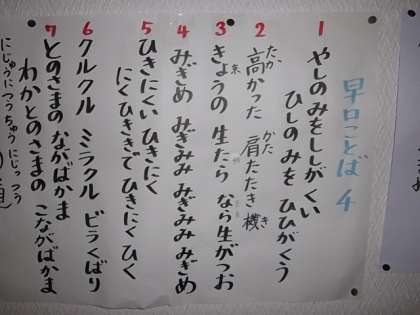 早口ことば 4
1 やしのみをししがくい
ひしのみをひひがくう
2 高かった 肩たたき機
たか がた き
3 きょうの生たら なら生がつお
京
4 みぎめ みぎみみ みぎみみ みぎめ
5 ひきにくいひきにく
にくひききでひきにくひく
6 クルクル ミラクル ビラくばり
7 とのさまの ながばかま
わかとのさまの こながばかま